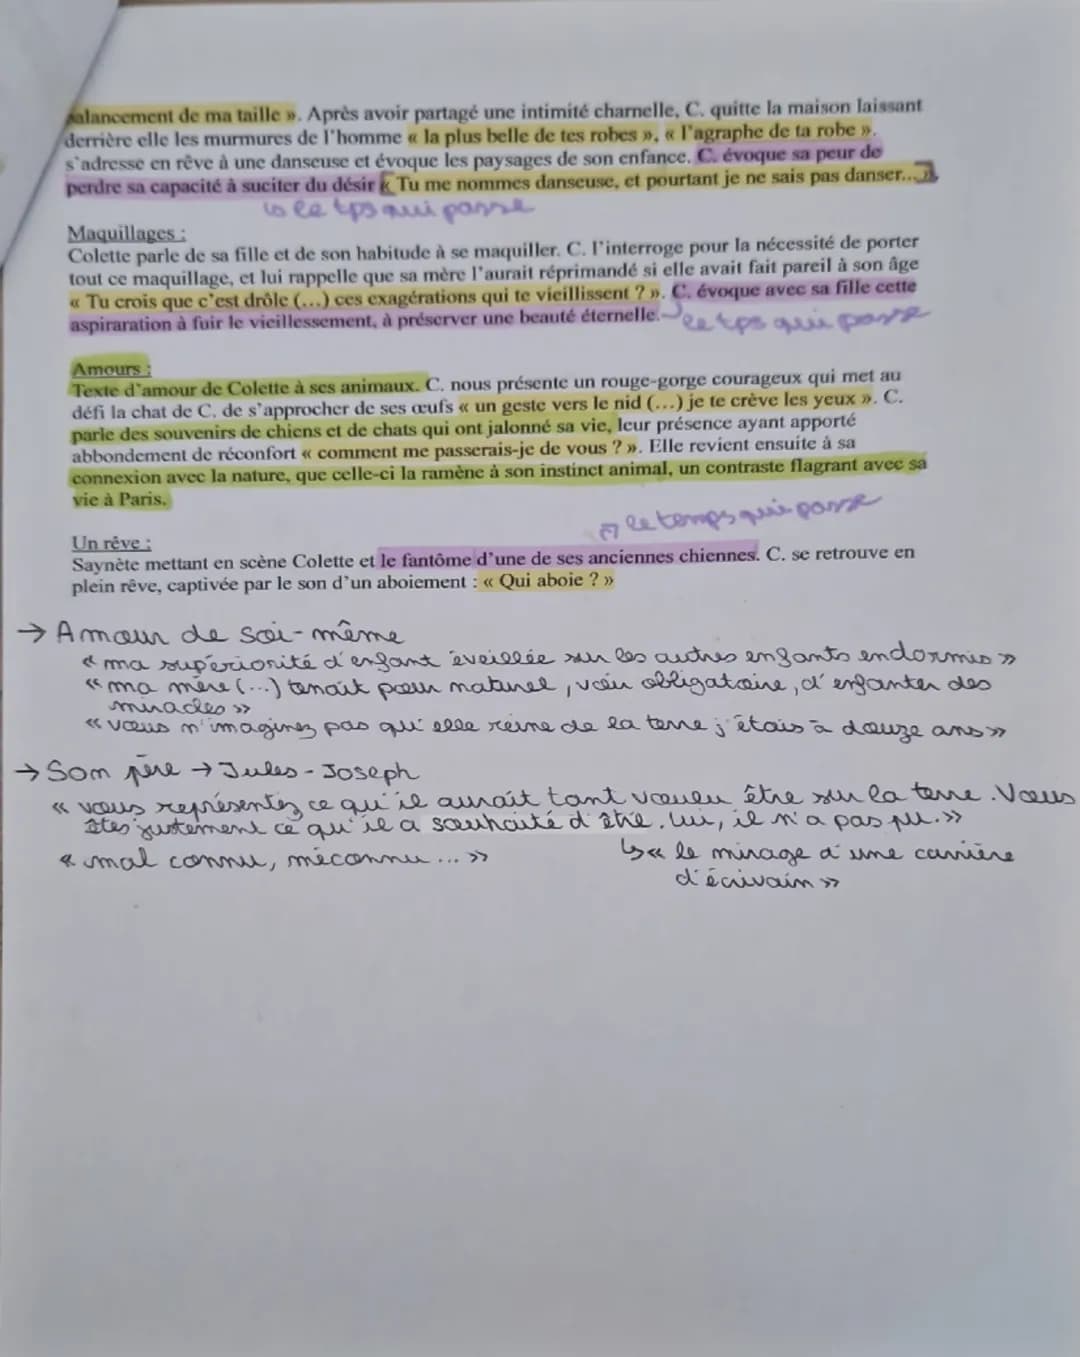 balancement de ma taille ». Après avoir partagé une intimité charnelle, C. quitte la maison laissant
derrière elle les murmures de l'homme « la plus belle de tes robes », « l'agraphe de ta robe ».
s'adresse en rêve à une danseuse et évoque les paysages de son enfance. C. évoque sa peur de
perdre sa capacité à suciter du désir « Tu me nommes danseuse, et pourtant je ne sais pas danser... »
↳ le tps qui passe
Maquillages :
Colette parle de sa fille et de son habitude à se maquiller. C. l'interroge pour la nécessité de porter
tout ce maquillage, et lui rappelle que sa mère l'aurait réprimandé si elle avait fait pareil à son âge
« Tu crois que c'est drôle (...) ces exagérations qui te vieillissent ? ». C. évoque avec sa fille cette
aspiraration à fuir le vieillessement, à préserver une beauté éternelle. le tps qui passe
Amours :
Texte d'amour de Colette à ses animaux. C. nous présente un rouge-gorge courageux qui met au
défi la chat de C. de s'approcher de ses œufs « un geste vers le nid (...) je te crève les yeux ». C.
parle des souvenirs de chiens et de chats qui ont jalonné sa vie, leur présence ayant apporté
abbondement de réconfort « comment me passerais-je de vous ? ». Elle revient ensuite à sa
connexion avec la nature, que celle-ci la ramène à son instinct animal, un contraste flagrant avec sa
vie à Paris.
le temps qui passe
Un rêve :
Saynète mettant en scène Colette et le fantôme d'une de ses anciennes chiennes. C. se retrouve en
plein rêve, captivée par le son d'un aboiement : « Qui aboie ? »
→ Amour de soi-même
« ma supériorité d'enfant éveillée sur les autres enfants endormis »
« ma mère (...) tenait pour naturel, voir obligatoire, d'enfanter des
miracles »
« vous n'imaginez pas qu'elle reine de la terre j'étais à douze ans »
→ Son père → Jules-Joseph
« vous représentez ce qu'il aurait tant voulu être sur la terre. Vous
êtes justement ce qu'il a souhaité d'être. Lui, il n'a pas pu. »
« mal connu, méconnu ... » ↳ « le mirage d'une carrière
d'écrivain »